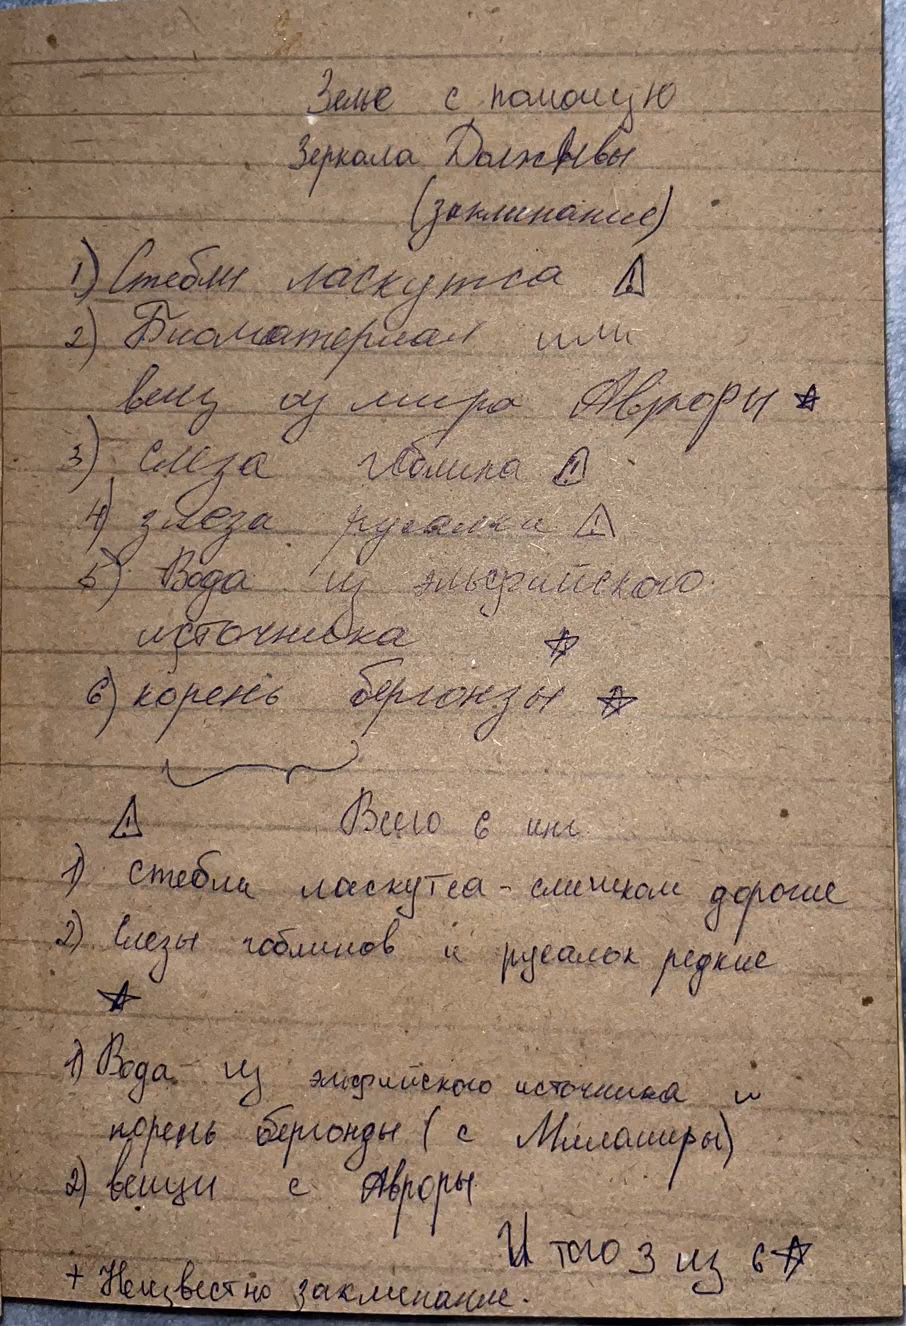 Зелье с помощью
Зеркала
(заклинание)
1) Стебли ласкутса ⚠
2) Биоматериал или
вещ из мира Авроры ☆
3) слеза гоблина ⚠
4) злеза русалки ⚠
5) Вода из эльфийского
источника ☆
6) корень бергонзы ☆
⚠ Всего 6 инг.
1) стебли ласкутса - слишком дорогие
2) Слезы гоблинов и русалок редкие
☆
1) Вода из эльфийского источника и
корень (с Милаширы)
2) вещи с Авроры
Итого 3 из 6 ☆
+ Неизвестно заклинание.